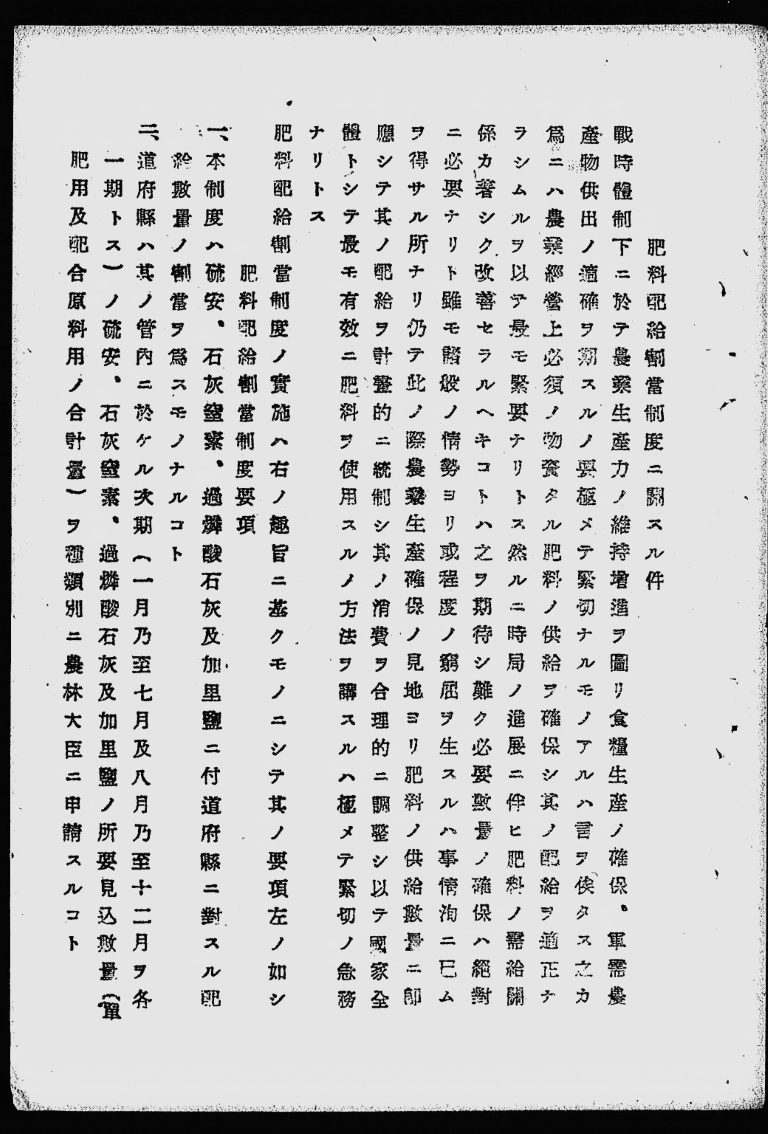 肥料配給割當制度ニ關スル件
戰時體制下ニ於テ農業生產力ノ維持增進ヲ圖リ食糧生產ノ確保、軍需農
產物供出ノ適確ヲ期スルノ要極メテ緊切ナルモノアルハ言ヲ俟タス之カ
爲ニハ農業經營上必須ノ物資タル肥料ノ供給ヲ確保シ其ノ配給ヲ適正ナ
ラシムルヲ以テ最モ緊要ナリトス然ルニ時局ノ進展ニ伴ヒ肥料ノ需給關
係カ著シク改善セラルヘキコトハ之ヲ期待シ難ク必要數量ノ確保ハ絕對
ニ必要ナリト雖モ諸般ノ情勢ヨリ或程度ノ窮屈ヲ生スルハ事情洵ニ已ム
ヲ得サル所ナリ仍テ此ノ際農業生產確保ノ見地ヨリ肥料ノ供給數量ニ卽
應シテ其ノ配給ヲ計畫的ニ統制シ其ノ消費ヲ合理的ニ調整シ以テ國家全
體トシテ最モ有效ニ肥料ヲ使用スルノ方法ヲ講スルハ極メテ緊切ノ急務
ナリトス
肥料配給割當制度ノ實施ハ右ノ趣旨ニ基クモノニシテ其ノ要項左ノ如シ
肥料配給割當制度要項
一、本制度ハ硫安、石灰窒素、過燐酸石灰及加里鹽ニ付道府縣ニ對スル配
給數量ノ割當ヲ爲スモノナルコト
二、道府縣ハ其ノ管內ニ於ケル次期(一月乃至七月及八月乃至十二月ヲ各
一期トス)ノ硫安、石灰窒素、過燐酸石灰及加里鹽ノ所要見込數量(單
肥用及配合原料用ノ合計量)ヲ種類別ニ農林大臣ニ申請スルコト